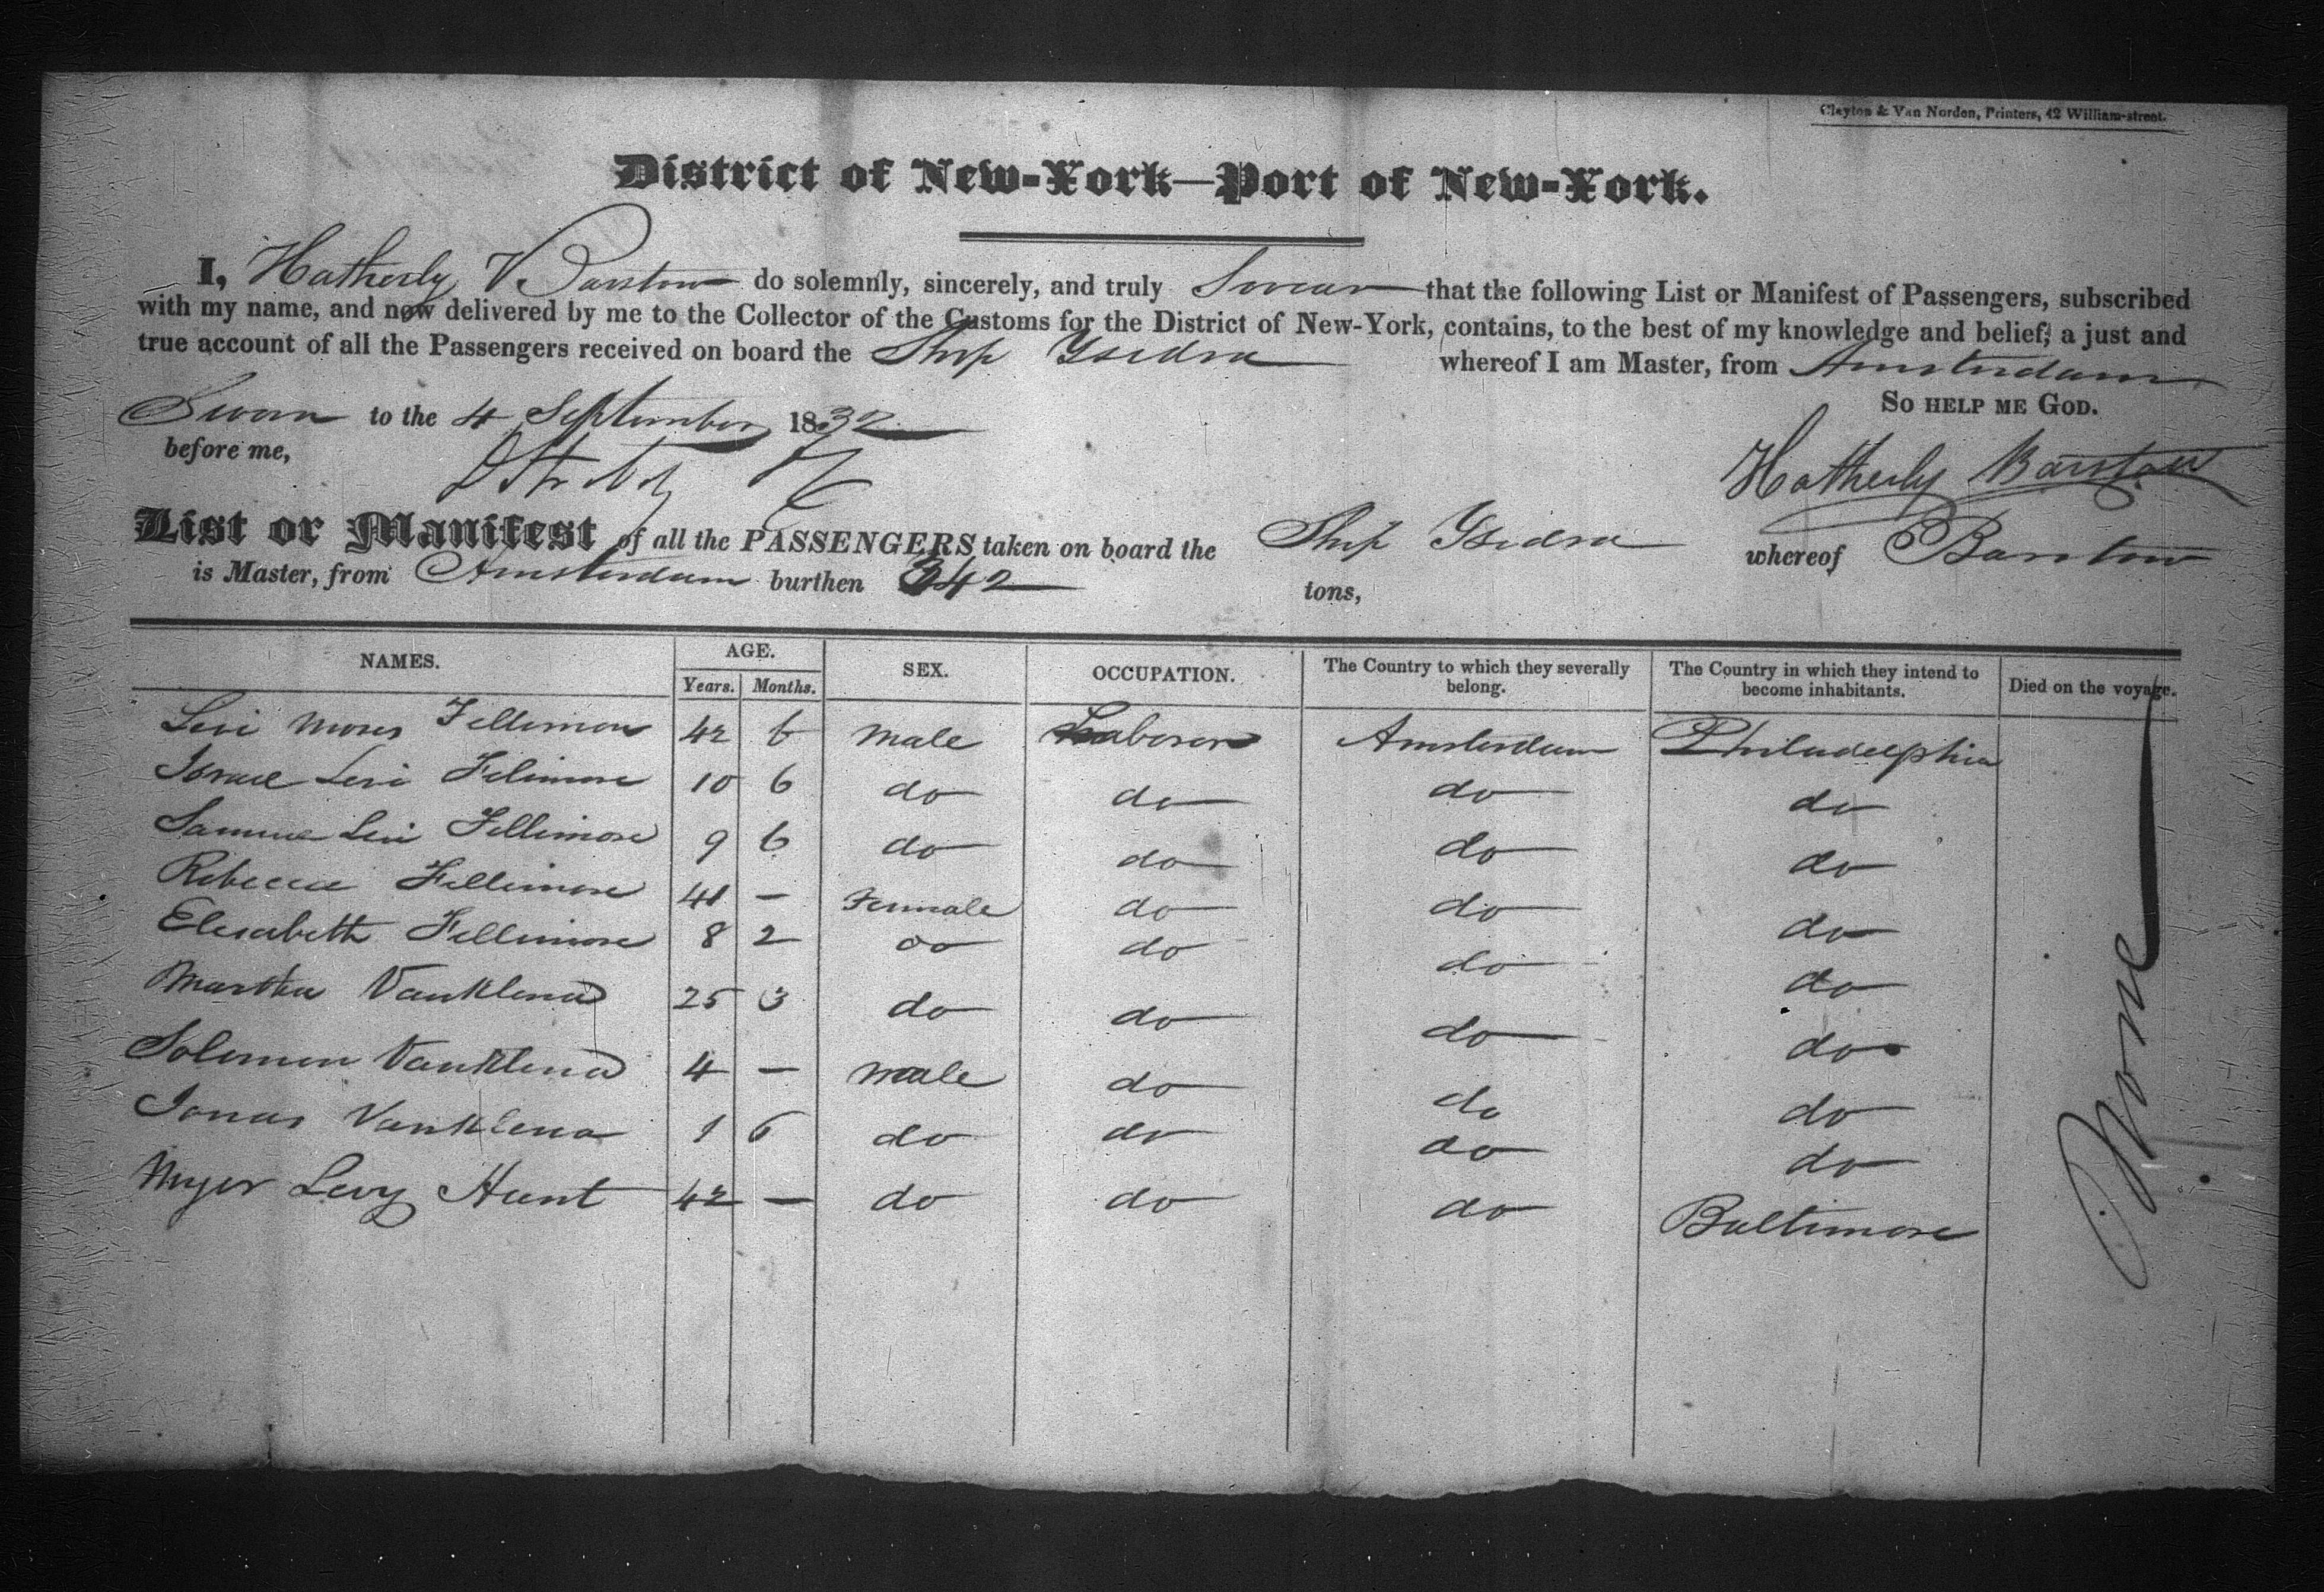 Clayton & Van Norden, Printers, 42 William-street.
District of New-York—Port of New-York.
I, Hatherly Barstow do solemnly, sincerely, and truly Swear that the following List or Manifest of Passengers, subscribed
with my name, and now delivered by me to the Collector of the Customs for the District of New-York, contains, to the best of my knowledge and belief, a just and
true account of all the Passengers received on board the Ship Ysidra whereof I am Master, from Amsterdam
So HELP ME GOD.
Sworn to the 4 September 1832
before me,
Hatherly Barstow
List or Manifest of all the PASSENGERS taken on board the Ship Ysidra whereof Barstow
is Master, from Amsterdam burthen 342 tons,
NAMES. AGE. SEX. OCCUPATION. The Country to which they severally belong. The Country in which they intend to become inhabitants. Died on the voyage.
Years. Months.
Levi Moses Fellimore 42 6 Male Laborer Amsterdam Philadelphia
Israel Levi Felimore 10 6 do do do do
Samuel Levi Fellimore 9 6 do do do do
Rebecca Fellimore 41 — Female do do do
Elesabeth Fellimore 8 2 do do do do
Martha Vanklena 25 3 do do do do
Solomon Vanklena 4 — Male do do do
Jonas Vanklena 1 6 do do do do
Myer Levy Hunt 42 — do do do Baltimore
None